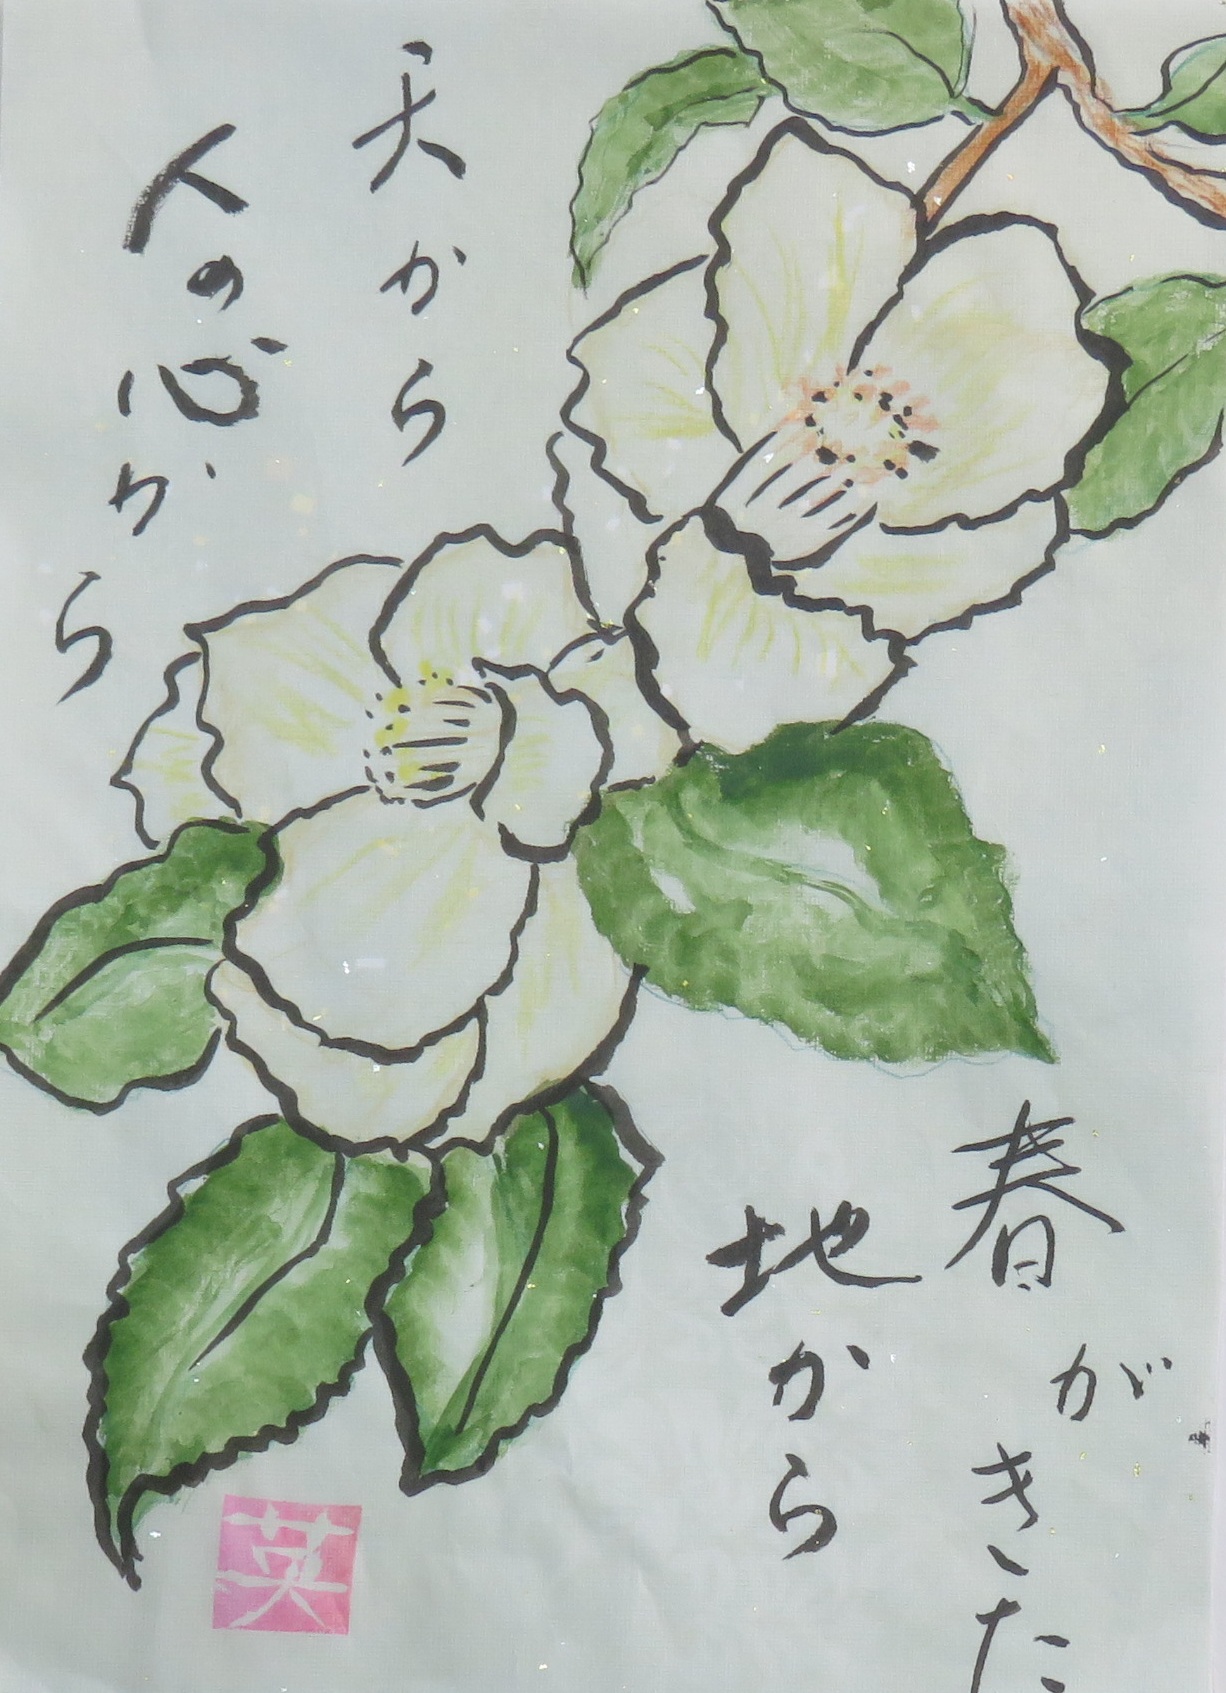 春がきた
地から
天から
人の心から
英